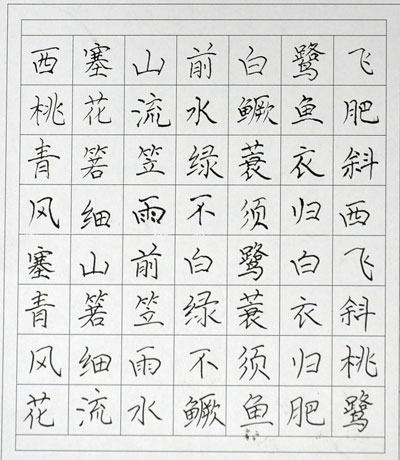 西塞山前白鹭飞
桃花流水鳜鱼肥
青箬笠绿蓑衣斜
风细雨不须归西
塞山前白鹭白飞
青箬笠绿蓑衣斜
风细雨不须归桃
花流水鳜鱼肥鹭